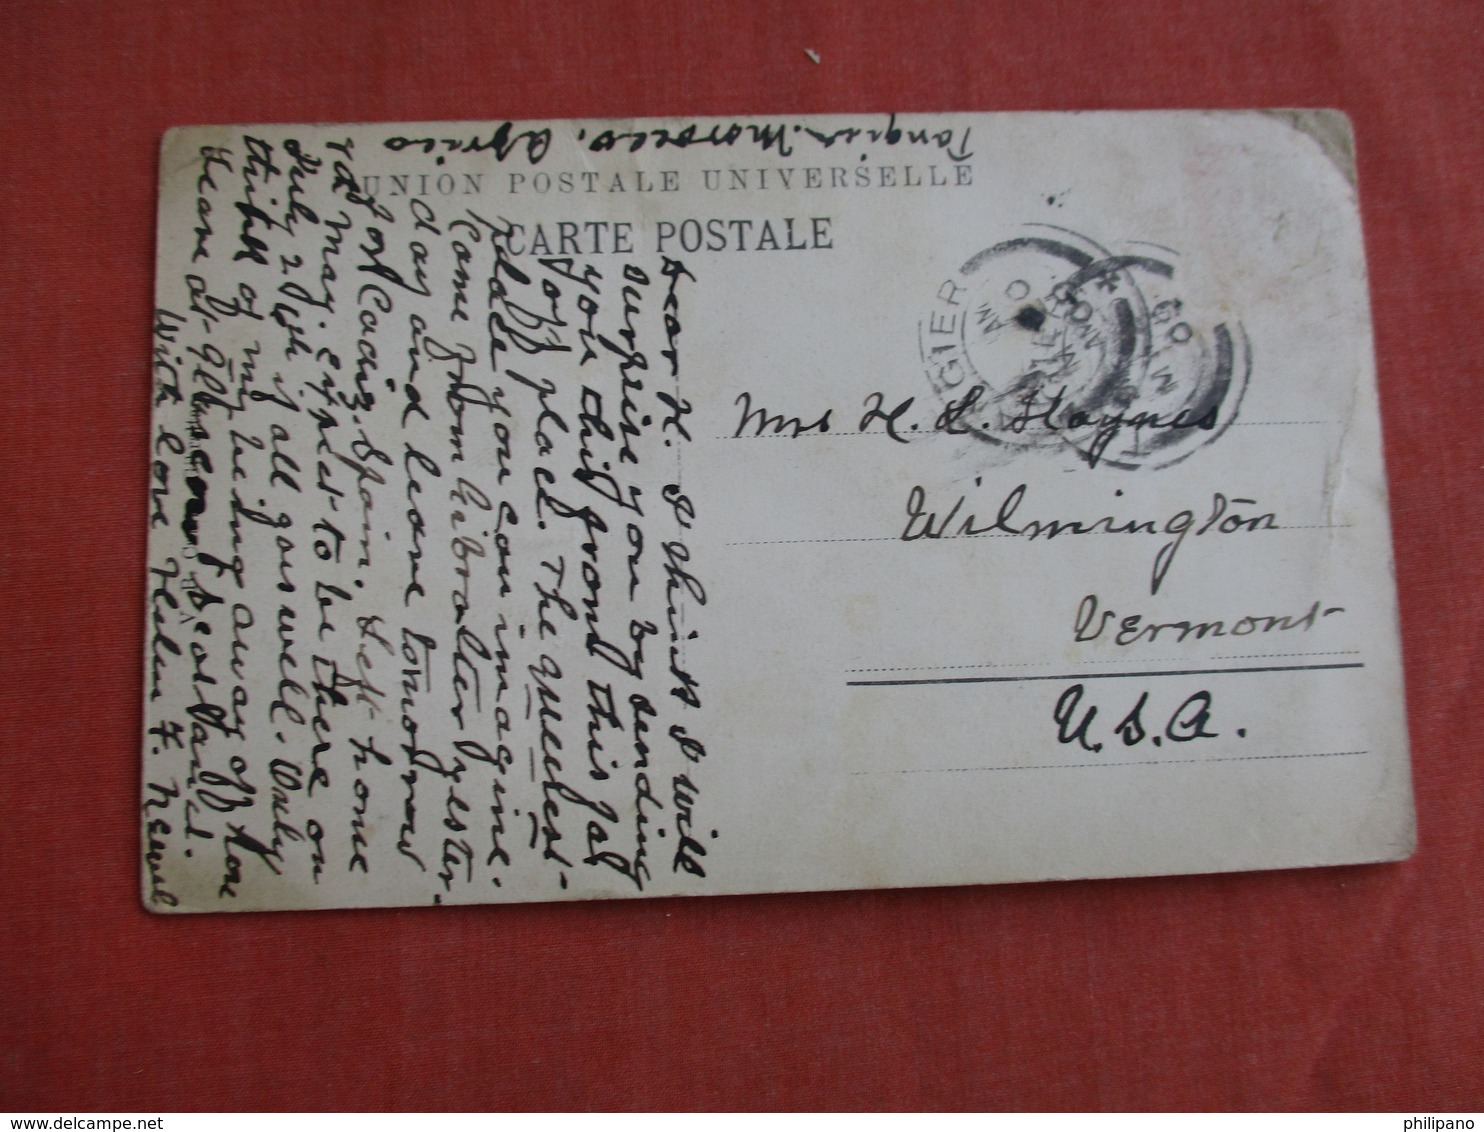 Tangier. Morocco. Africa
UNION POSTALE UNIVERSELLE
CARTE POSTALE
Dear H. I think I will
surprise you by sending
you this from this far
off place. The queerest
place you can imagine.
Come from Gibralter yester-
day and leave tomorrow
for Cadiz, Spain. Left home
May. expect to be there on
July 28th if all goes well. Only
think of my being away off here
Leave at
With love Helen F. Newell
GIER
AM
09
Mrs H. L. Haynes
Wilmington
Vermont
U.S.A.
philipano